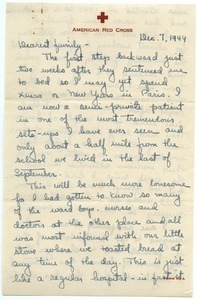 AMERICAN RED CROSS
Dec. 7, 1944
Dearest family -
The first step backward just
two weeks after they sentenced me
to bed so I may yet spend
Xmas or New Years in Paris. I
am now a semi-private patient
in one of the most tremendous
sets-ups I have ever seen and
only about a half mile from the
school we lived in the last of
September.
This will be much more lonesome
for I had gotten to know so many
of the ward boys, nurses and
doctors at the other place and all
was most informal with our little
stove where we toasted bread at
any time of the day. This is just
like a regular hospital - in fact it